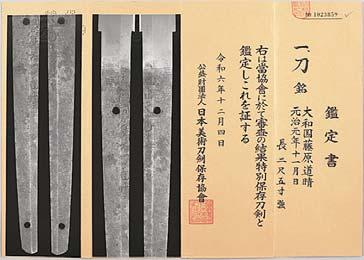 № 1023859
鑑定書
一、刀 銘 大和国藤原道晴
元治元年十一月日
長 二尺五寸強
右は當協會に於て審査の結果特別保存刀剣と
鑑定しこれを証する
令和六年十二月四日
公益財団法人 日本美術刀剣保存協會